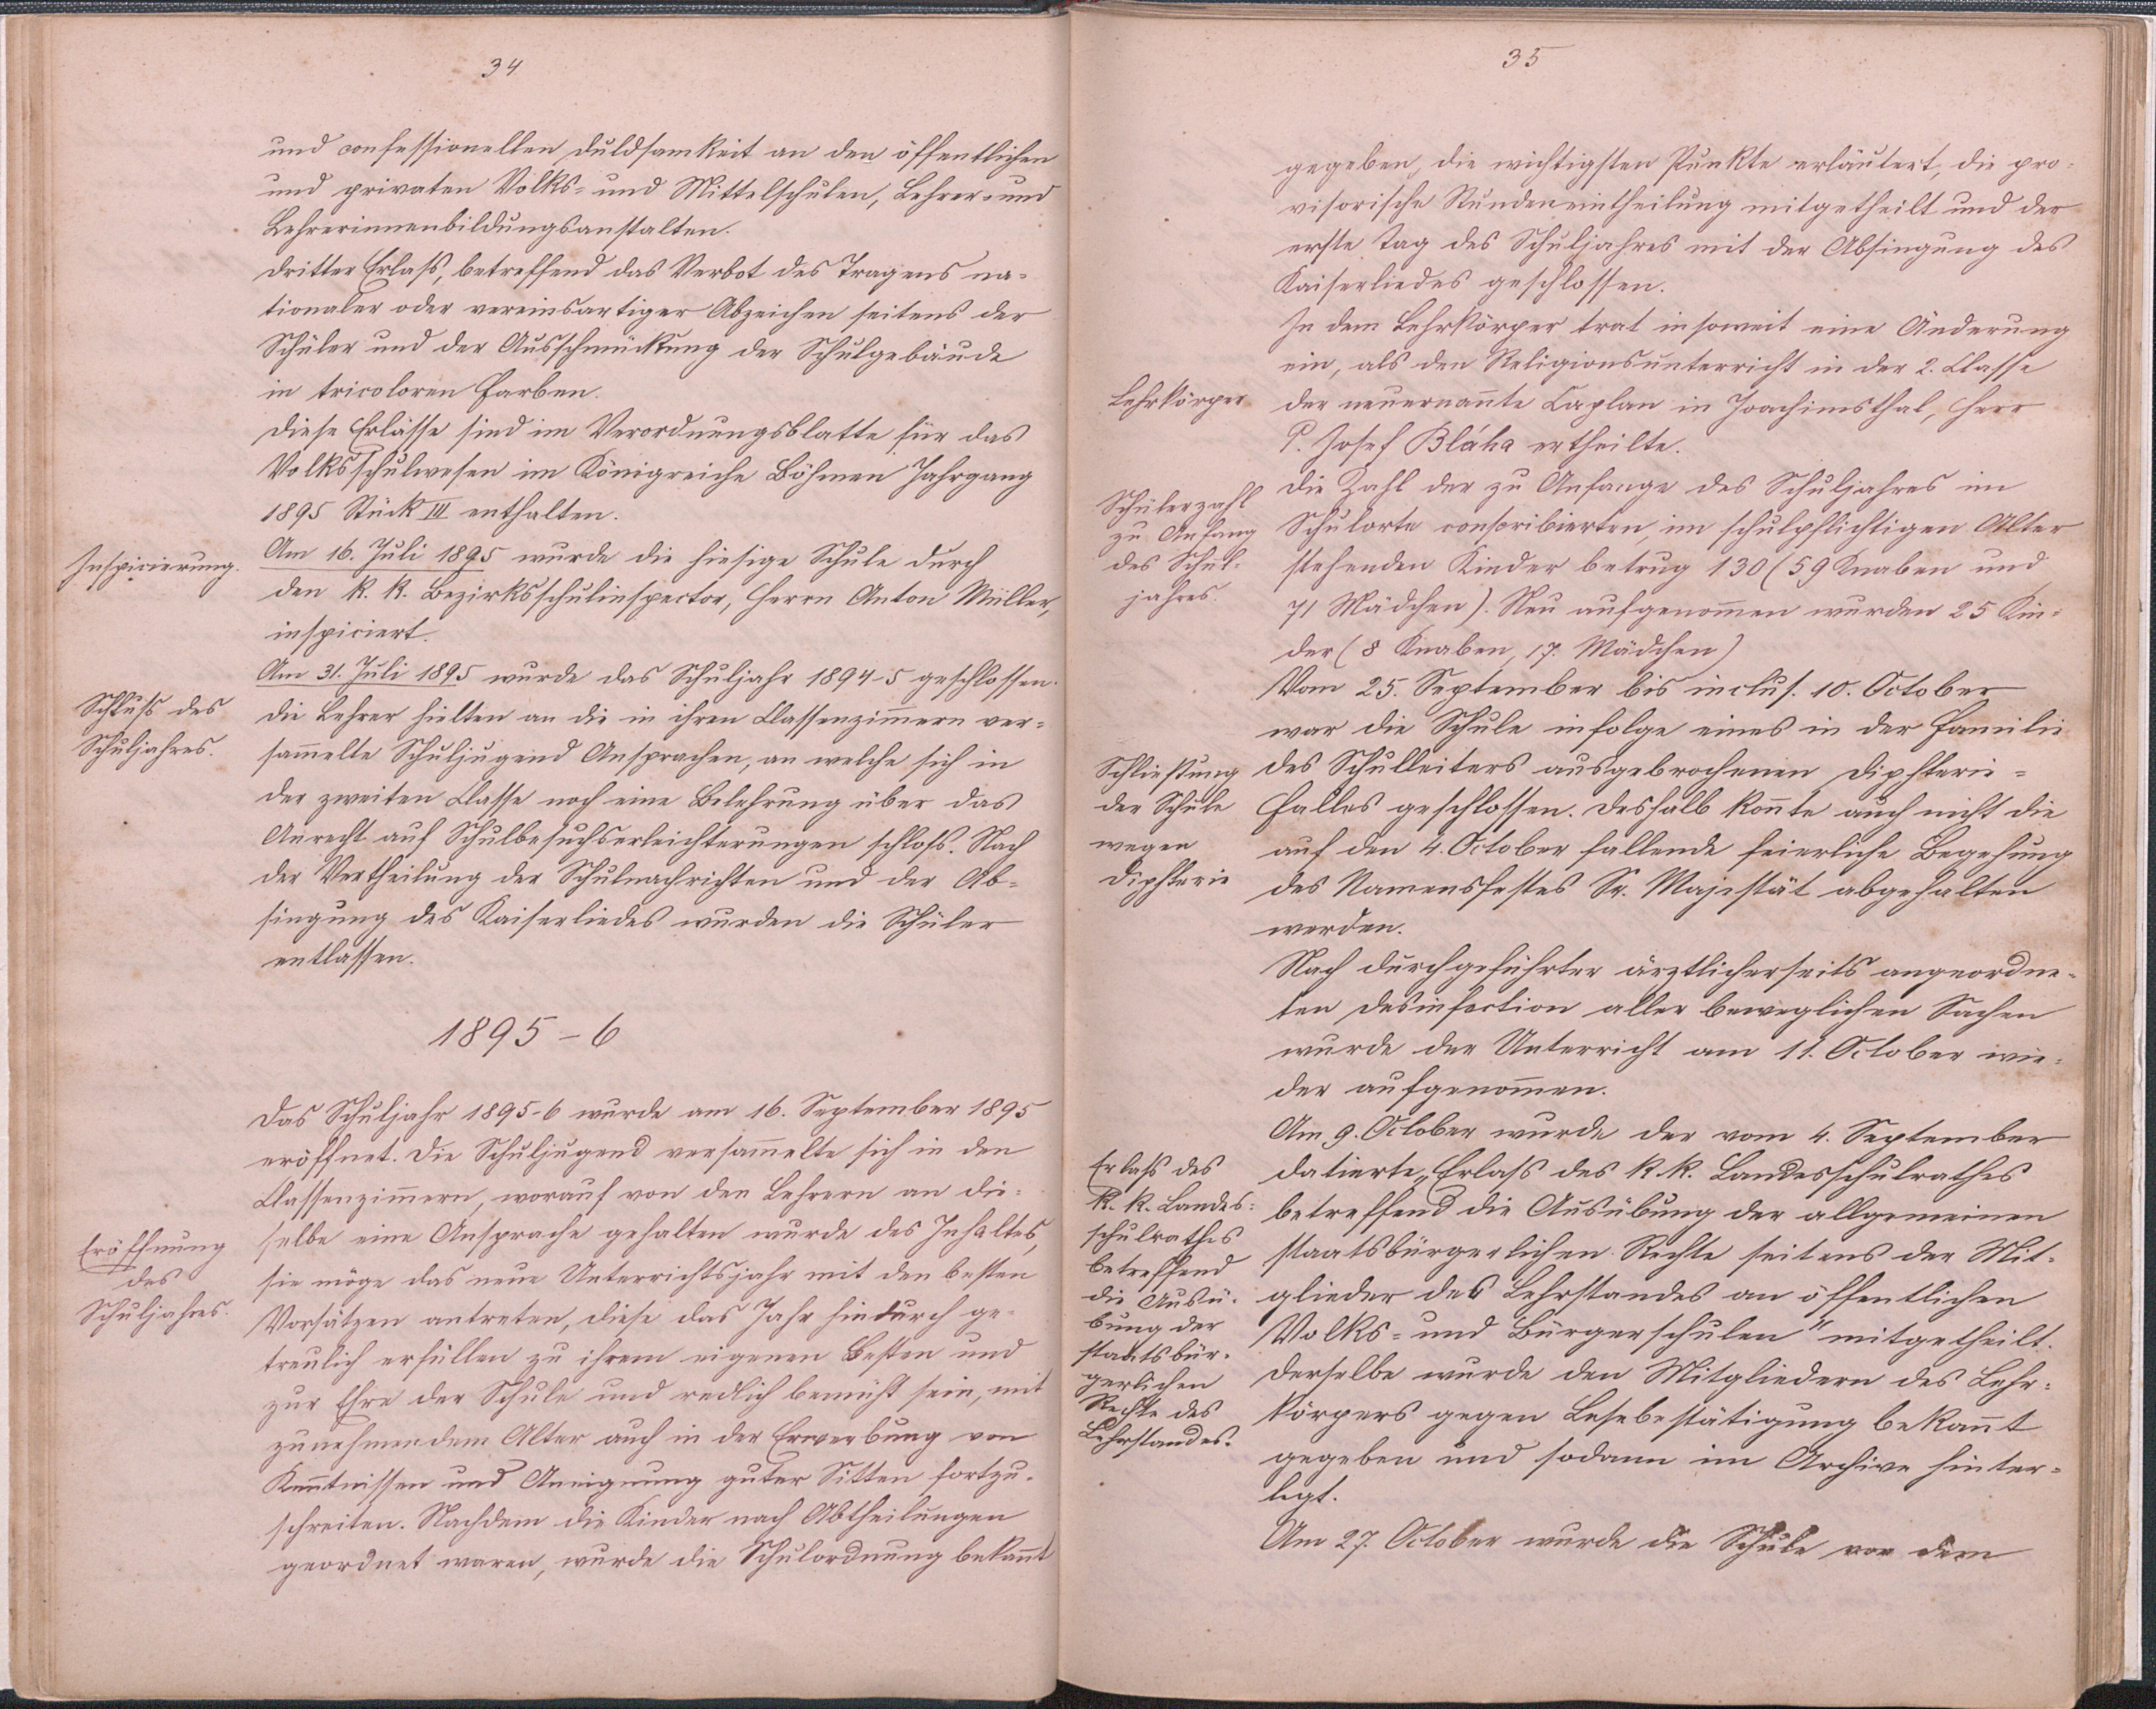 34
und confessionellen Duldsamkeit an den öffentlichen
und privaten Volks- und Mittelschulen, Lehrer- und
Lehrerinnenbildungsanstalten.
Dritter Erlaß, betreffend das Verbot des Tragens na-
tionaler oder vereinsartiger Abzeichen seitens der
Schüler und der Ausschmückung der Schulgebäude
in tricoloren Farben.
Diese Erlässe sind im Verordnungsblatte für das
Volksschulwesen im Königreiche Böhmen Jahrgang
1895 Stück III enthalten.
Inspicierung.
Am 16. Juli 1895 wurde die hiesige Schule durch
den k. k. Bezirksschulinspector, Herrn Anton Müller,
inspiciert.
Schluß des
Schuljahres.
Am 31. Juli 1895 wurde das Schuljahr 1894-5 geschlossen.
Die Lehrer hielten an die in ihren Classenzim̄ern ver-
sam̄elte Schuljugend Ansprachen, an welche sich in
der zweiten Classe noch eine Belehrung über das
Anrecht auf Schulbesuchserleichterungen schloß. Nach
der Vertheilung der Schulnachrichten und der Ab-
singung des Kaiserliedes wurden die Schüler
entlassen.
1895-6
Das Schuljahr 1895-6 wurde am 16. September 1895
eröffnet. Die Schuljugend versam̄elte sich in den
Classenzim̄ern, worauf von den Lehrern an die-
Eröffnung
des
Schuljahres.
selbe eine Ansprache gehalten wurde des Inhaltes,
sie möge das neue Unterrichtsjahr mit den besten
Vorsätzen antreten, diese das Jahr hindurch ge-
treulich erfüllen zu ihrem eigenen Besten und
zur Ehre der Schule und redlich bemüht sein, mit
zunehmendem Alter auch in der Erwerbung von
Ken̄tnissen und Aneignung guter Sitten fortzu-
schreiten. Nachdem die Kinder nach Abtheilungen
geordnet waren, wurde die Schulordnung bekan̄t
35
gegeben, die wichtigsten Punkte erläutert, die pro-
visorische Stundeneintheilung mitgetheilt und der
erste Tag des Schuljahres mit der Absingung des
Kaiserliedes geschlossen.
Lehrkörper
In dem Lehrkörper trat insoweit eine Änderung
ein, als den Religionsunterricht in der 2. Classe
der neuernan̄te Caplan in Joachimsthal, Herr
P. Josef Bláha ertheilte.
Schülerzahl
zu Anfang
des Schul-
jahres.
Die Zahl der zu Anfange des Schuljahres im
Schulorte conscribierten, im schulpflichtigen Alter
stehenden Kinder betrug 130 (59 Knaben und
71 Mädchen). Neu aufgenom̄en wurden 25 Kin-
der (8 Knaben, 17. Mädchen)
Schließung
der Schule
wegen
Diphterie
Vom 25. September bis inclus. 10. October
war die Schule infolge eines in der Familie
des Schulleiters ausgebrochenen Diphterie-
falles geschlossen. Deshalb kon̄te auch nicht die
auf den 4. October fallende feierliche Begehung
des Namensfestes Sr. Majestät abgehalten
werden.
Nach durchgeführter ärztlicherseits angeordne-
ten Desinfection aller beweglichen Sachen
wurde der Unterricht am 11. October wie-
der aufgenom̄en.
Erlaß des
k. k. Landes-
schulrathes
betreffend
die Ausü-
bung der
staatsbür-
gerlichen
Rechte des
Lehrstandes.
Am 9. October wurde der vom 4. September
datierte „Erlaß des k. k. Landesschulrathes
betreffend die Ausübung der allgemeinen
staatsbürgerlichen Rechte seitens der Mit-
glieder des Lehrstandes an öffentlichen
Volks- und Bürgerschulen" mitgetheilt.
Derselbe wurde den Mitgliedern des Lehr-
körpers gegen Lesebestätigung bekan̄t
gegeben und sodann im Archive hinter-
legt.
Am 27. October wurde die Schule von dem